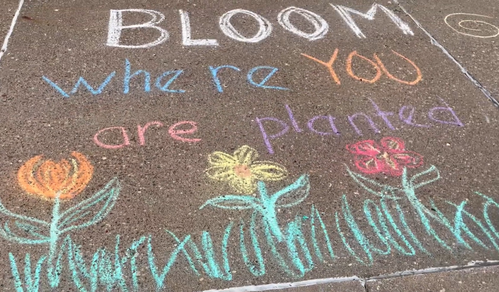 BLOOM
where YOU
are planted